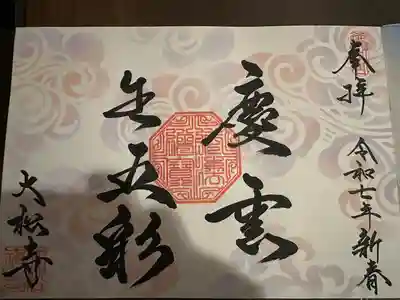 奉拝　令和七年新春
慶雲
生五彩
大松寺